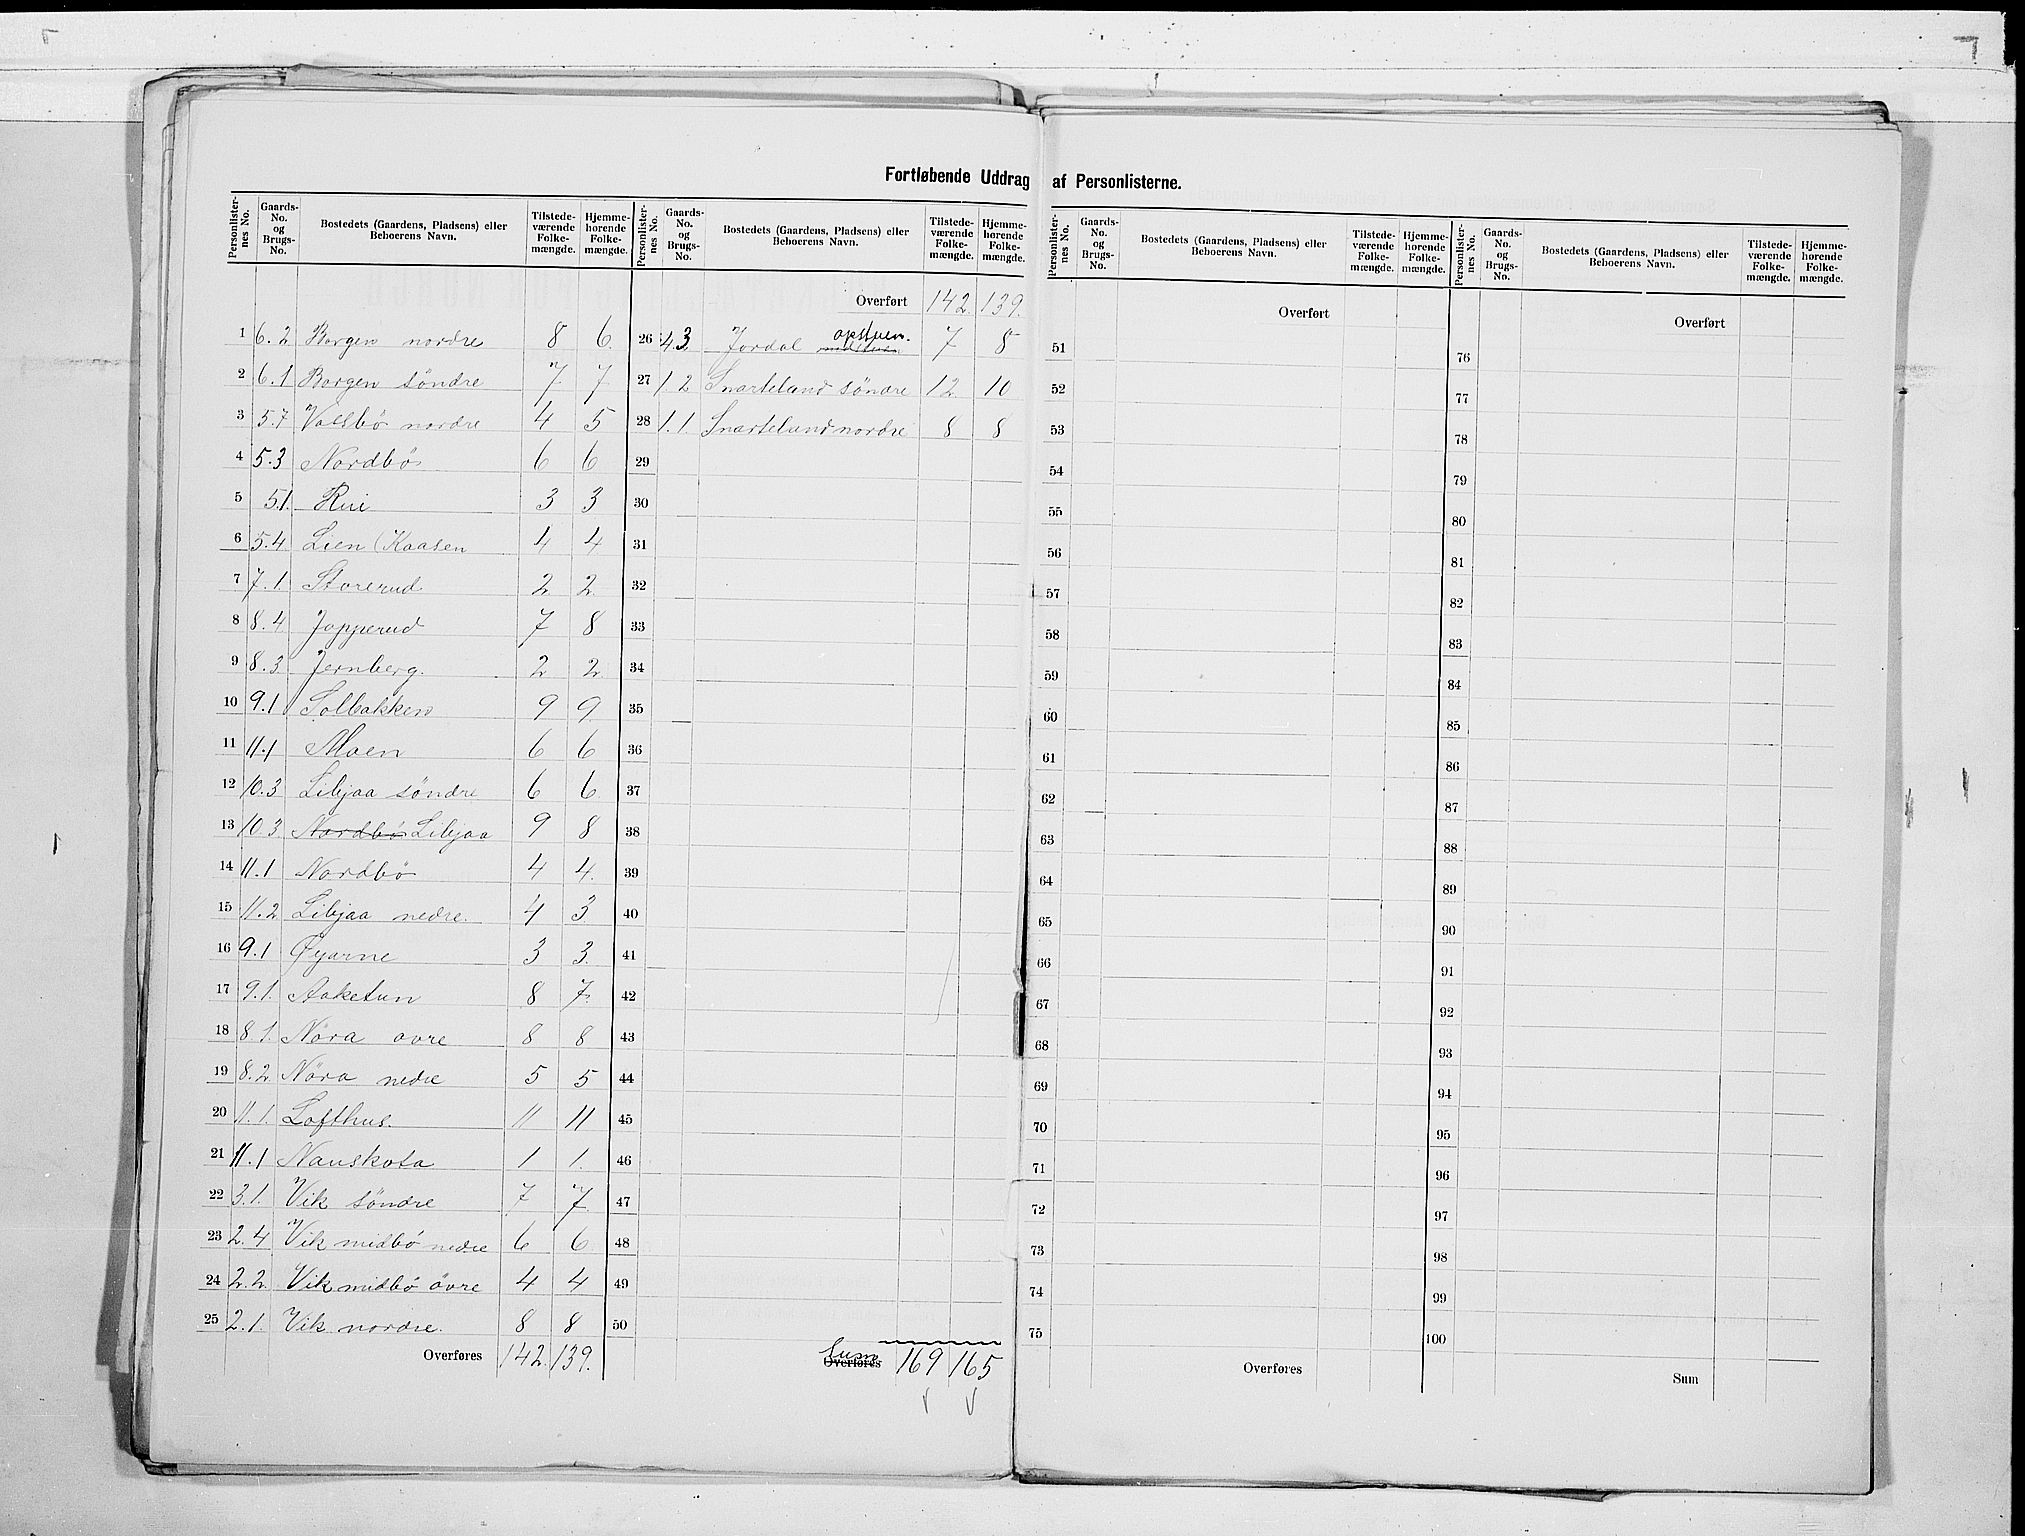 Fortløbende Uddrag af Personlisterne.
Personlister-nes No. Gaards-No. og Brugs-No. Bostedets (Gaardens, Pladsens) eller Beboerens Navn. Tilstede-værende Folke-mængde. Hjemme-hørende Folke-mængde.
1 6.2 Borgen nordre 8 6
2 6.1 Borgen söndre 7 7
3 5.7 Valsbö nordre 4 5
4 5.3 Nordbö 6 6
5 5.1. Rui 3 3
6 5.4 Lien (Kaasen 4 4
7 7.1 Storerud 2 2
8 8.4 Jopperud 7 8
9 8.3 Jernberg. 2 2
10 9.1 Solbakken 9 9
11 11.1 Moen 6 6
12 10.3 Libjaa söndre 6 6
13 10.3 Nordbö Libjaa 9 8
14 11.1 Nordbö 4 4.
15 11.2 Libjaa nedre. 4 3
16 9.1 Øyarne 3 3.
17 9.1. Aaketun 8 7.
18 8.1. Nöra ovre 8 8
19 8.2 Nöra nedre 5 5
20 11.1. Lofthus. 11 11
21 11.1 Nauskota 1 1.
22 3.1. Vik söndre 7 7
23 2.4 Vik midbö nedre 6 6
24 2.2. Vik midbö övre 4 4
25 2.1. Vik nordre. 8 8
Overføres 142. 139.
Personlister-nes No. Gaards-No. og Brugs-No. Bostedets (Gaardens, Pladsens) eller Beboerens Navn. Tilstede-værende Folke-mængde. Hjemme-hørende Folke-mængde.
Overført 142. 139.
26 4.3 Jordal opstuen. 7 8
27 1.2 Snarteland söndre 12. 10
28 1.1. Snarteland nordre 8 8
29
30
31
32
33
34
35
36
37
38
39
40
41
42
43
44
45
46
47
48
49
50
Overføres Sum 169 165
Personlister-nes No. Gaards-No. og Brugs-No. Bostedets (Gaardens, Pladsens) eller Beboerens Navn. Tilstede-værende Folke-mængde. Hjemme-hørende Folke-mængde.
Overført
51
52
53
54
55
56
57
58
59
60
61
62
63
64
65
66
67
68
69
70
71
72
73
74
75
Overføres
Personlister-nes No. Gaards-No. og Brugs-No. Bostedets (Gaardens, Pladsens) eller Beboerens Navn. Tilstede-værende Folke-mængde. Hjemme-hørende Folke-mængde.
Overført
76
77
78
79
80
81
82
83
84
85
86
87
88
89
90
91
92
93
94
95
96
97
98
99
100
Sum